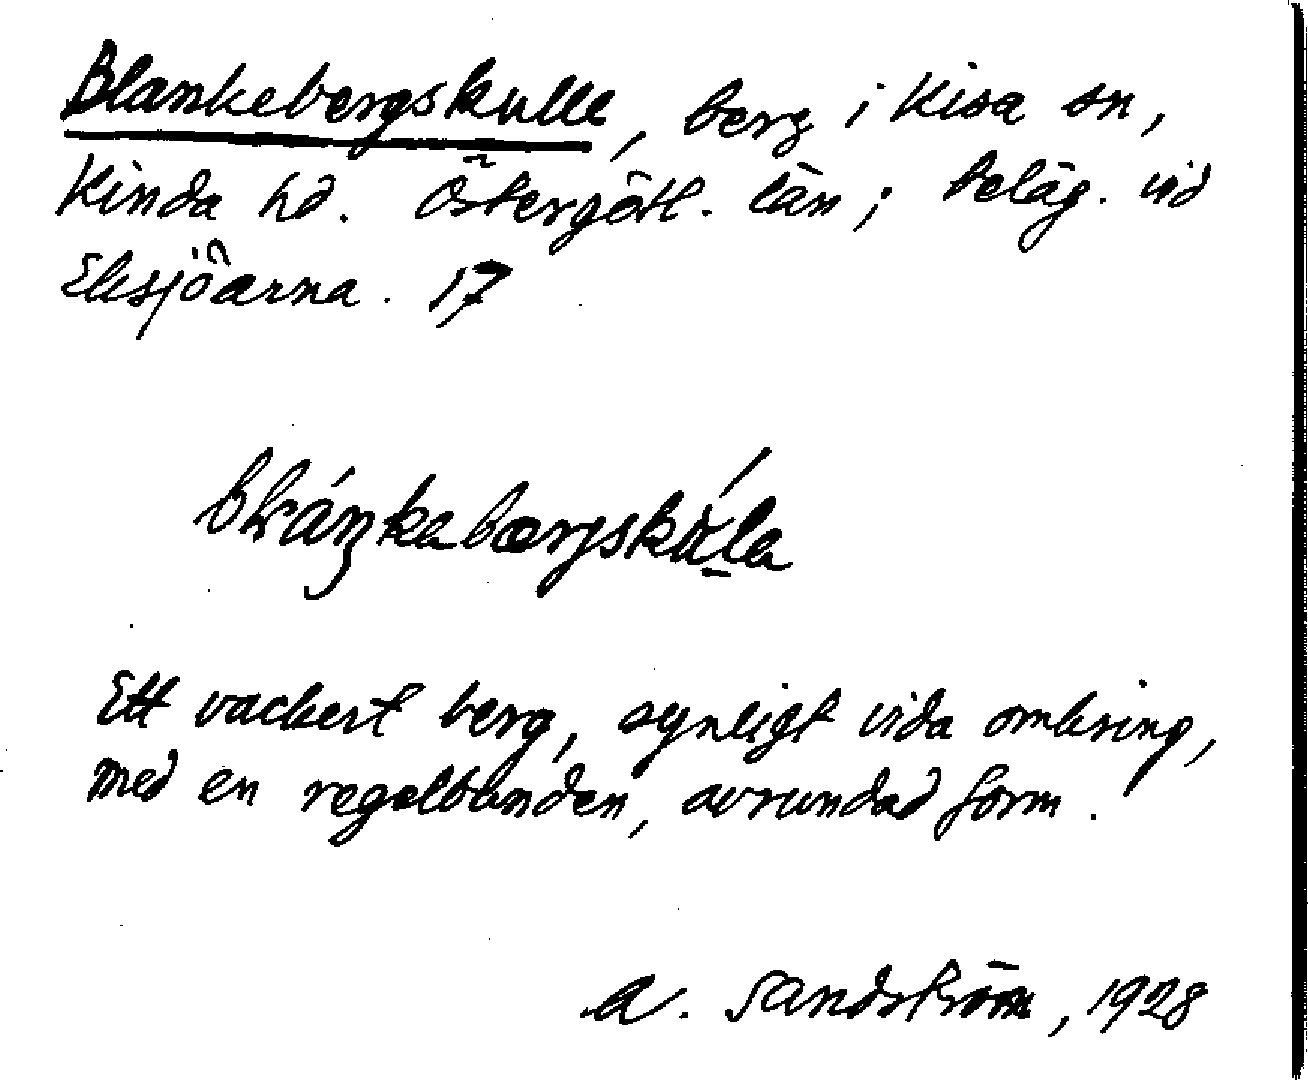 Blankebergskulle, berg i Kisa sn,
Kinda hd. Östergötl. län; beläg. vid
Eksjöarna. 17
Ett vackert berg, synligt vida omkring,
med en regelbunden, avrundad form.
A. Sandström, 1928